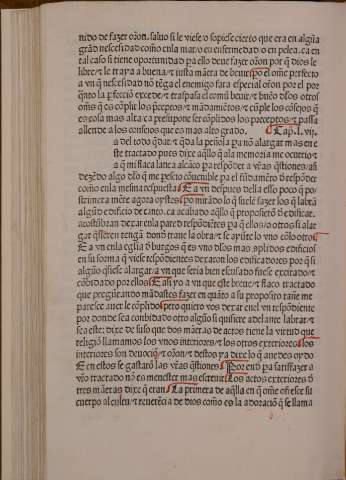 nido de fazer oōn. saluo si le viese/o sopiese cierto que era en algūa
grād nescesidad coṁo en la mar/o en enfermedad/o en pelea. ca en
tal caso si tiene oportunidad pa ello deue fazer oōn por q̄ dios le
libre/⁊ le traya a buena/⁊ iusta māera de beuir po el oṁe perfecto
a vn q̄ nescesidad nō tēga el enemigo fara especial oōn por el por
quito la perfecciō excede/⁊ traspasa el comū beuir/⁊ bueō d̄los otros
oṁs q̄ es cōplir los p̄ceptos/⁊ mādamiētos/⁊ cūple los cōsejos q̄
es cosa mas alta/ca presupone ser cōplidos los preceptos/⁊ passa
allende a los consejos que es mas alto grado. Cap. l. vij.
a del todo q̄dar/⁊ q̄da la peñola pa nō alargar mas en e
ste tractado pues dixe aq̄llo q̄ a la memoria me ocurrio/⁊
a q̄ mi flaca lança alcāço pa respōder a vr̄as q̄stiones/ asi
dezēdo algo dlo q̄ me pescio cōueniblе pa el fūdamēto d̄ respōder
coṁo en la mesma respuesta E a vn despues della eſſo poco q̄ po
strimera mēte agora oystes po mirādo lo q̄ suelē fazer los q̄ labrā
algūd edificio de canto. ca acabado aq̄llo q̄ proposierō d̄ edificar.
acostūbran dexar en la pared respōdiētes pa q̄ ellos/o otros si alar
gar q̄sieren tengā donō trauе la obra/⁊ se ayūte lo vno cō lo otro
E a vn en la eglia d̄ burgos q̄ es vno d̄los mas sp̄lidos edificios
en su forma q̄ viese respōdientes dexaron los edificadores por q̄ si
alguō q̄siese alargar/a vn que seria bien escusado fuese excitado/⁊
cōbidado por ellos E asi yo a vn que este breue/⁊ flaco tractado
que pregūtando mādastes fazer en quāto a su proposito tāñe me
paresce auer le cōplido pero quiero vos dexar en el vn respōdiente
por donde sea conbidado otro alguō si quisiere adelante labrar/⁊
sea este: dixe de suso que dos māeras de actos tiene la virtud que
religiō llamamos los vnos interiores/⁊ los otros exteriores los
interiores son deuociō/⁊ oōn/⁊ destos ya dixe lo q̄ auedes oydo
E en estos se gastarō las vr̄as q̄stiones Por end̄ pa satisfazer a
vr̄o tractado nō es menester mas escreuir Los actos exteriores d̄
tres māeras dixe q̄ eran La primera de aq̄lla en q̄ oṁe ofresce su
cuerpo al culto/⁊ reuerēcia de dios coṁo es la adoraciō q̄ se llama